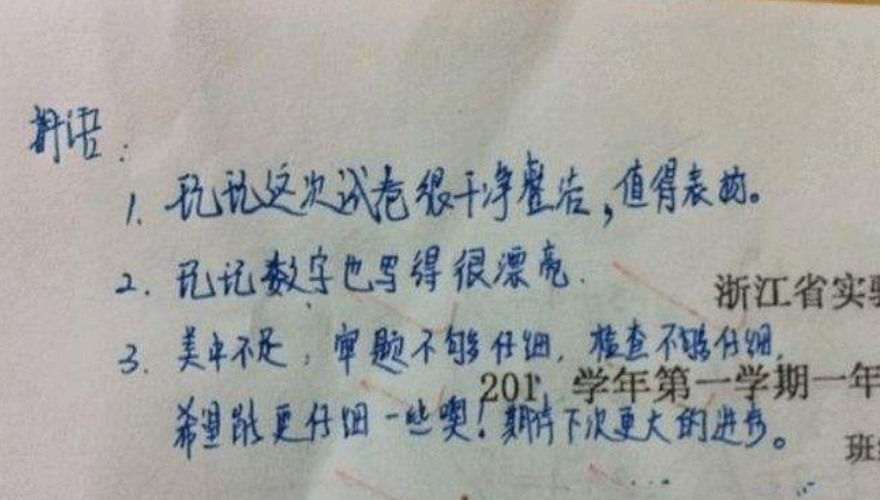 评语:
1. 玩玩这次试卷很干净整洁,值得表扬。
2. 玩玩数字也写得很漂亮.
浙江省实验
3. 美中不足:审题不够仔细,检查不够仔细,
201 学年第一学期一年
希望能更仔细一些噢!期待下次更大的进步。
班